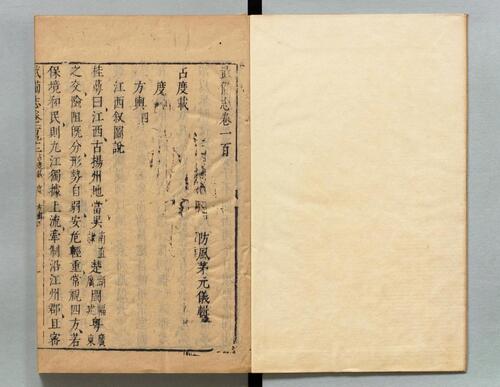 武備志卷一百
防風茅元儀輯
占度載
度
方輿四
江西叙圖說
桂萼曰江西古揚州地當吳
楚
粵
之交險阻既分形勢自弱安危輕重常視四方若
保境和民則九江獨據上流牽制沿江州郡且審
武備志卷